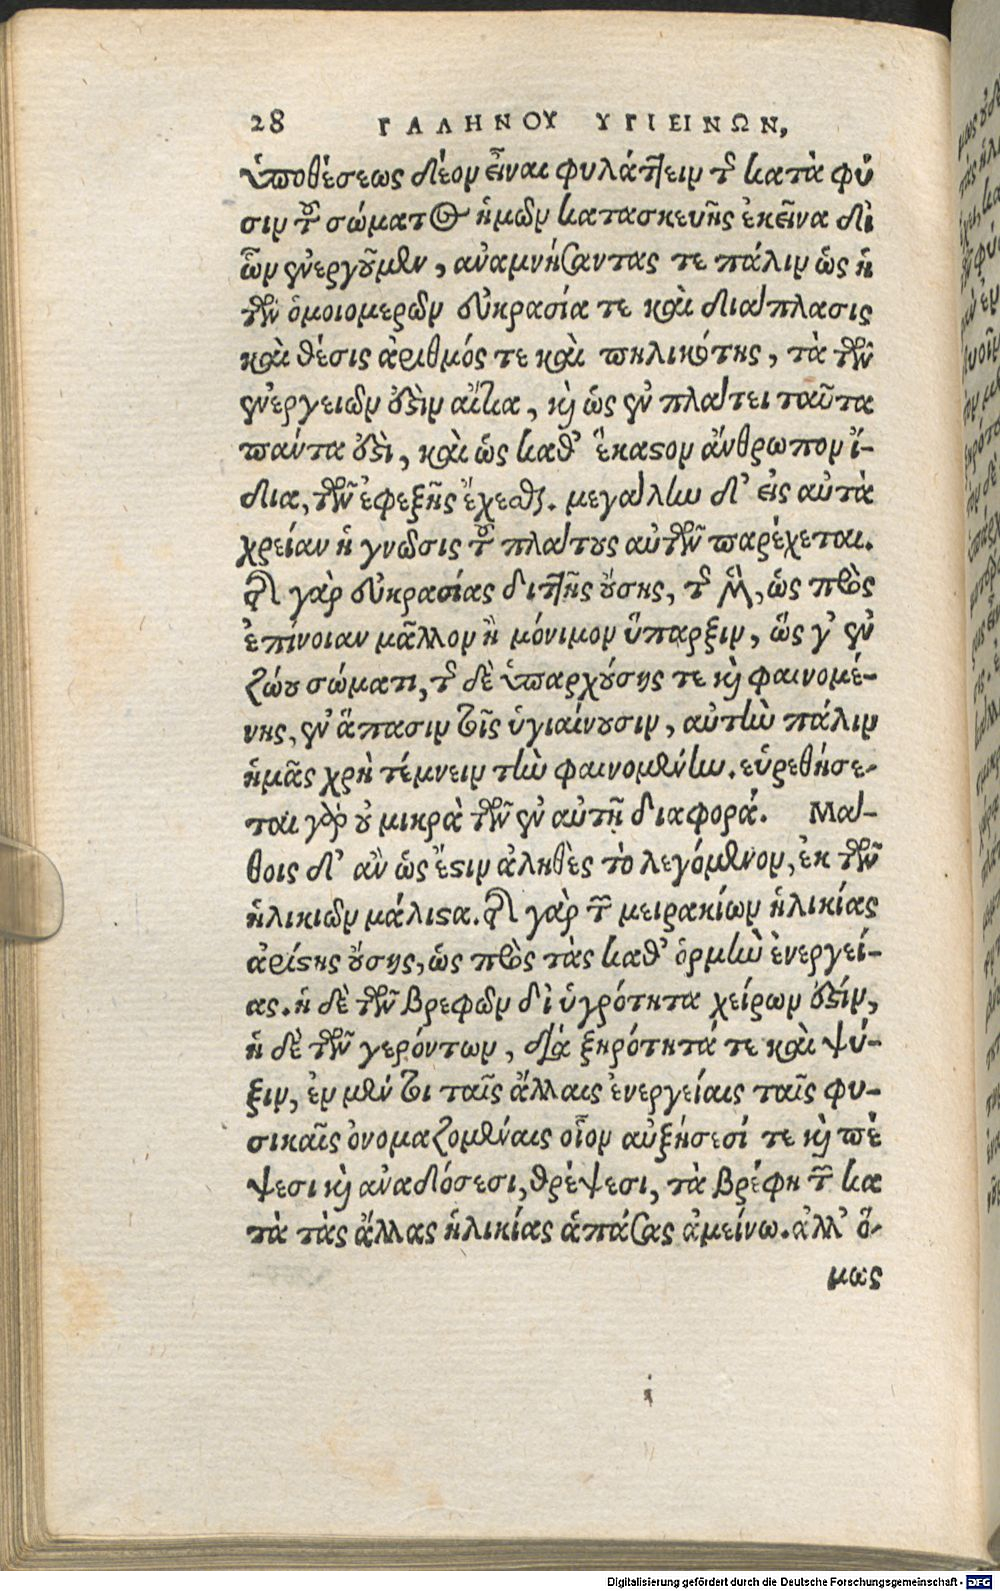 28 ΓΑΛΗΝΟΥ ΥΓΙΕΙΝΩΝ,
ὑποθέσεως δέον εἶναι φυλάττειν τ̀ κατὰ φύ
σιν τοῦ σώματος ἡμῶν κατασκευῆς ἐκεῖνα δἰ
ὧν ἐνεργοῦμεν, ἀναμνήσαντας τε πάλιν ὡς ἡ
τῶν ὁμοιομερῶν εὐκρασία τε καὶ διάπλασις
καὶ θέσις ἀριθμός τε καὶ πηλικότης, τὰ τῶν
ἐνεργειῶν ἐστὶν αἴτια, κὶ ὡς ἐν πλάτει ταῦτα
πάντα ἐστὶ, καὶ ὡς καθ᾽ ἕκαστον ἄνθρωπον ἴ-
δια, τῶν ἐφεξῆς ἔχεσθαι. μεγάλην δ᾽ εἰς αὐτὰ
χρείαν ἡ γνῶσις τοῦ πλάτους αὐτῶν παρέχεται.
τῆς γὰρ εὐκρασίας διττῆς οὔσης, τῆς μὲν, ὡς πρὸς
ἐπίνοιαν μᾶλλον ἢ μόνιμον ὕπαρξιν, ὥς γ᾽ ἐν
ζώου σώματι, τῆς δὲ ὑπαρχούσης τε κὶ φαινομέ-
νης, ἐν ἅπασιν τοῖς ὑγιαίνουσιν, αὐτὴν πάλιν
ἡμᾶς χρὴ τέμνειν τὴν φαινομένην. εὑρεθήσε-
ται γὰρ οὐ μικρὰ τῶν ἐν αὐτῇ διαφορά. Μά-
θοις δ᾽ ἂν ὡς ἔστιν ἀληθὲς τὸ λεγόμενον, ἐκ τῶν
ἡλικιῶν μάλιστα. τῆς γὰρ τῶν μειρακίων ἡλικίας
ἀρίστης οὔσης, ὡς πρὸς τὰς καθ᾽ ὁρμὴν ἐνεργεί-
ας. ἡ δὲ τῶν βρεφῶν δἰ ὑγρότητα χείρων ἐστίν,
ἡ δὲ τῶν γερόντων, διὰ ξηρότητά τε καὶ ψύ-
ξιν, ἐν μέν τοι ταῖς ἄλλαις ἐνεργείαις ταῖς φυ-
σικαῖς ὀνομαζομέναις οἷον αὐξήσεσί τε κὶ πέ
ψεσι κὶ ἀναδόσεσι, θρέψεσι, τὰ βρέφη τῶν κα
τὰ τὰς ἄλλας ἡλικίας ἁπάσας ἀμείνω. ἀλλ᾽ ὅ-
μως
Digitalisierung gefördert durch die Deutsche Forschungsgemeinschaft - DFG